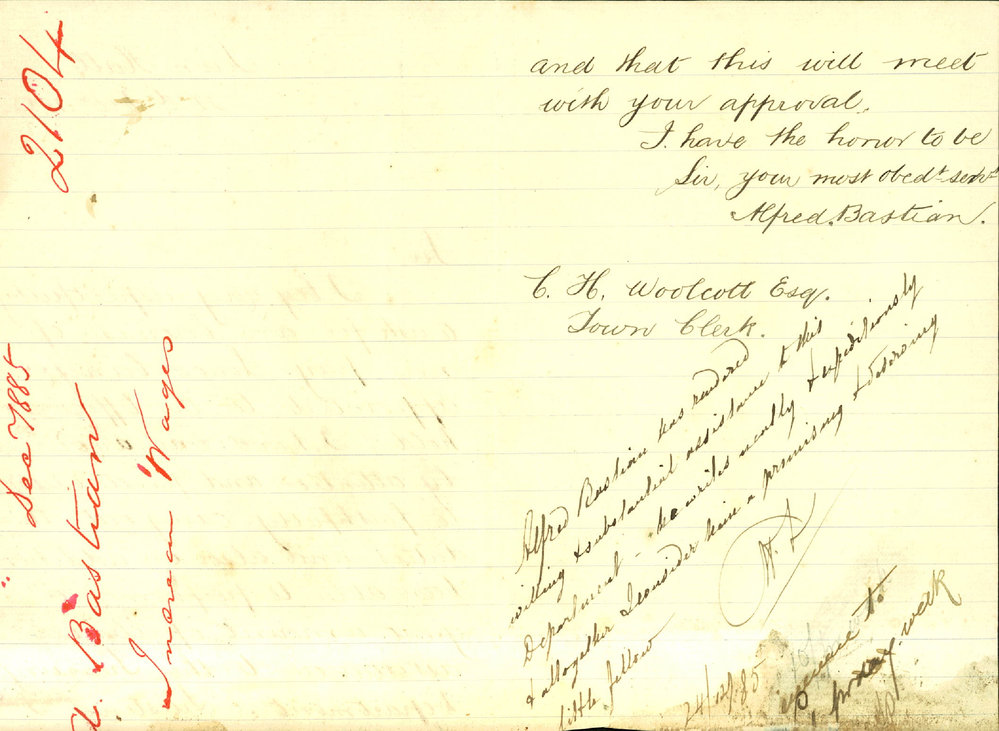 2104
Dec 7 1885
A. Bastian
Increase Wages
and that this will meet
with your approval.
I have the honor to be
Sir, your most obedt servt
Alfred. Bastian.
C. H. Woolcott Esq.
Town Clerk.
Alfred Bastian has rendered
willing & substantial assistance to this
Department - he writes neatly & expeditiously
& altogether I consider him a promising & deserving
little fellow
24/12/85
increase to
per week